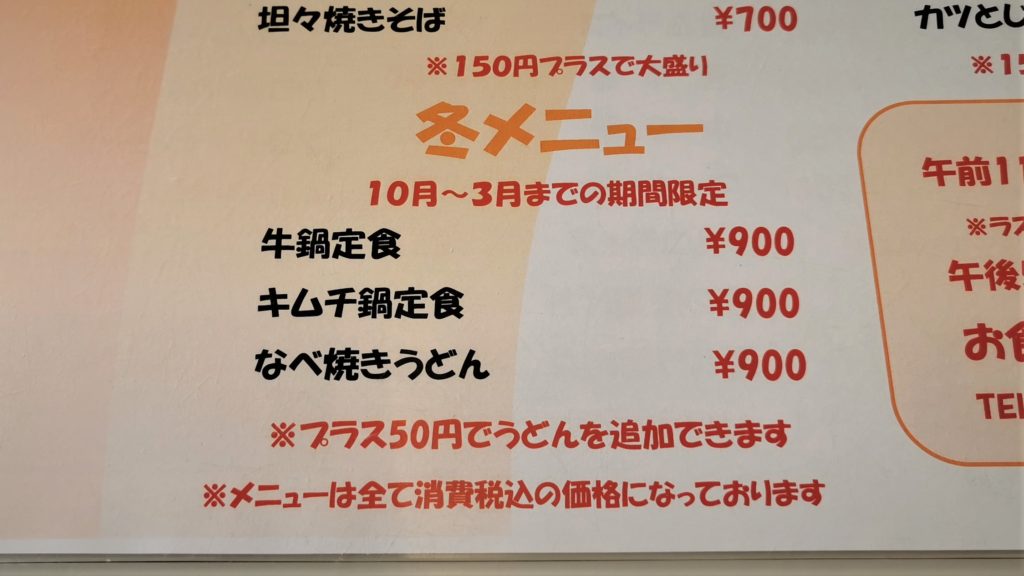 坦々焼きそば ¥700
※150円プラスで大盛り
冬メニュー
10月～3月までの期間限定
牛鍋定食 ¥900
キムチ鍋定食 ¥900
なべ焼きうどん ¥900
※プラス50円でうどんを追加できます
※メニューは全て消費税込の価格になっております
カツとじ
※15
午前11
※ラス
午後
お食
TEL